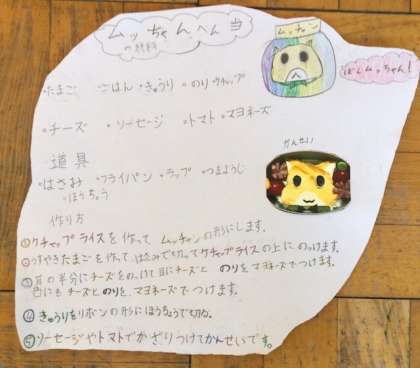 ムッちゃんべん当
の材料
ムッチャン
ぼくムッちゃん!
・たまご ・ごはん ・きゅうり ・のり ケチャップ
・チーズ ・ソーセージ ・トマト ・マヨネーズ
道具
・はさみ ・フライパン ・ラップ ・つまようじ
・ほうちょう
かんせい
作り方
①ケチャップライスを作って ムッチャンの形にします。
②うすやきたまごを作って はさみで切ってケチャップライスの上にのっけます。
③耳の半分にチーズをのっけて目にチーズと のりをマヨネーズでつけます。
口にもチーズとのりを、マヨネーズでつけます。
④きゅうりをリボンの形にほうちょうで切る。
⑤ソーセージやトマトでかざりつけてかんせいです。